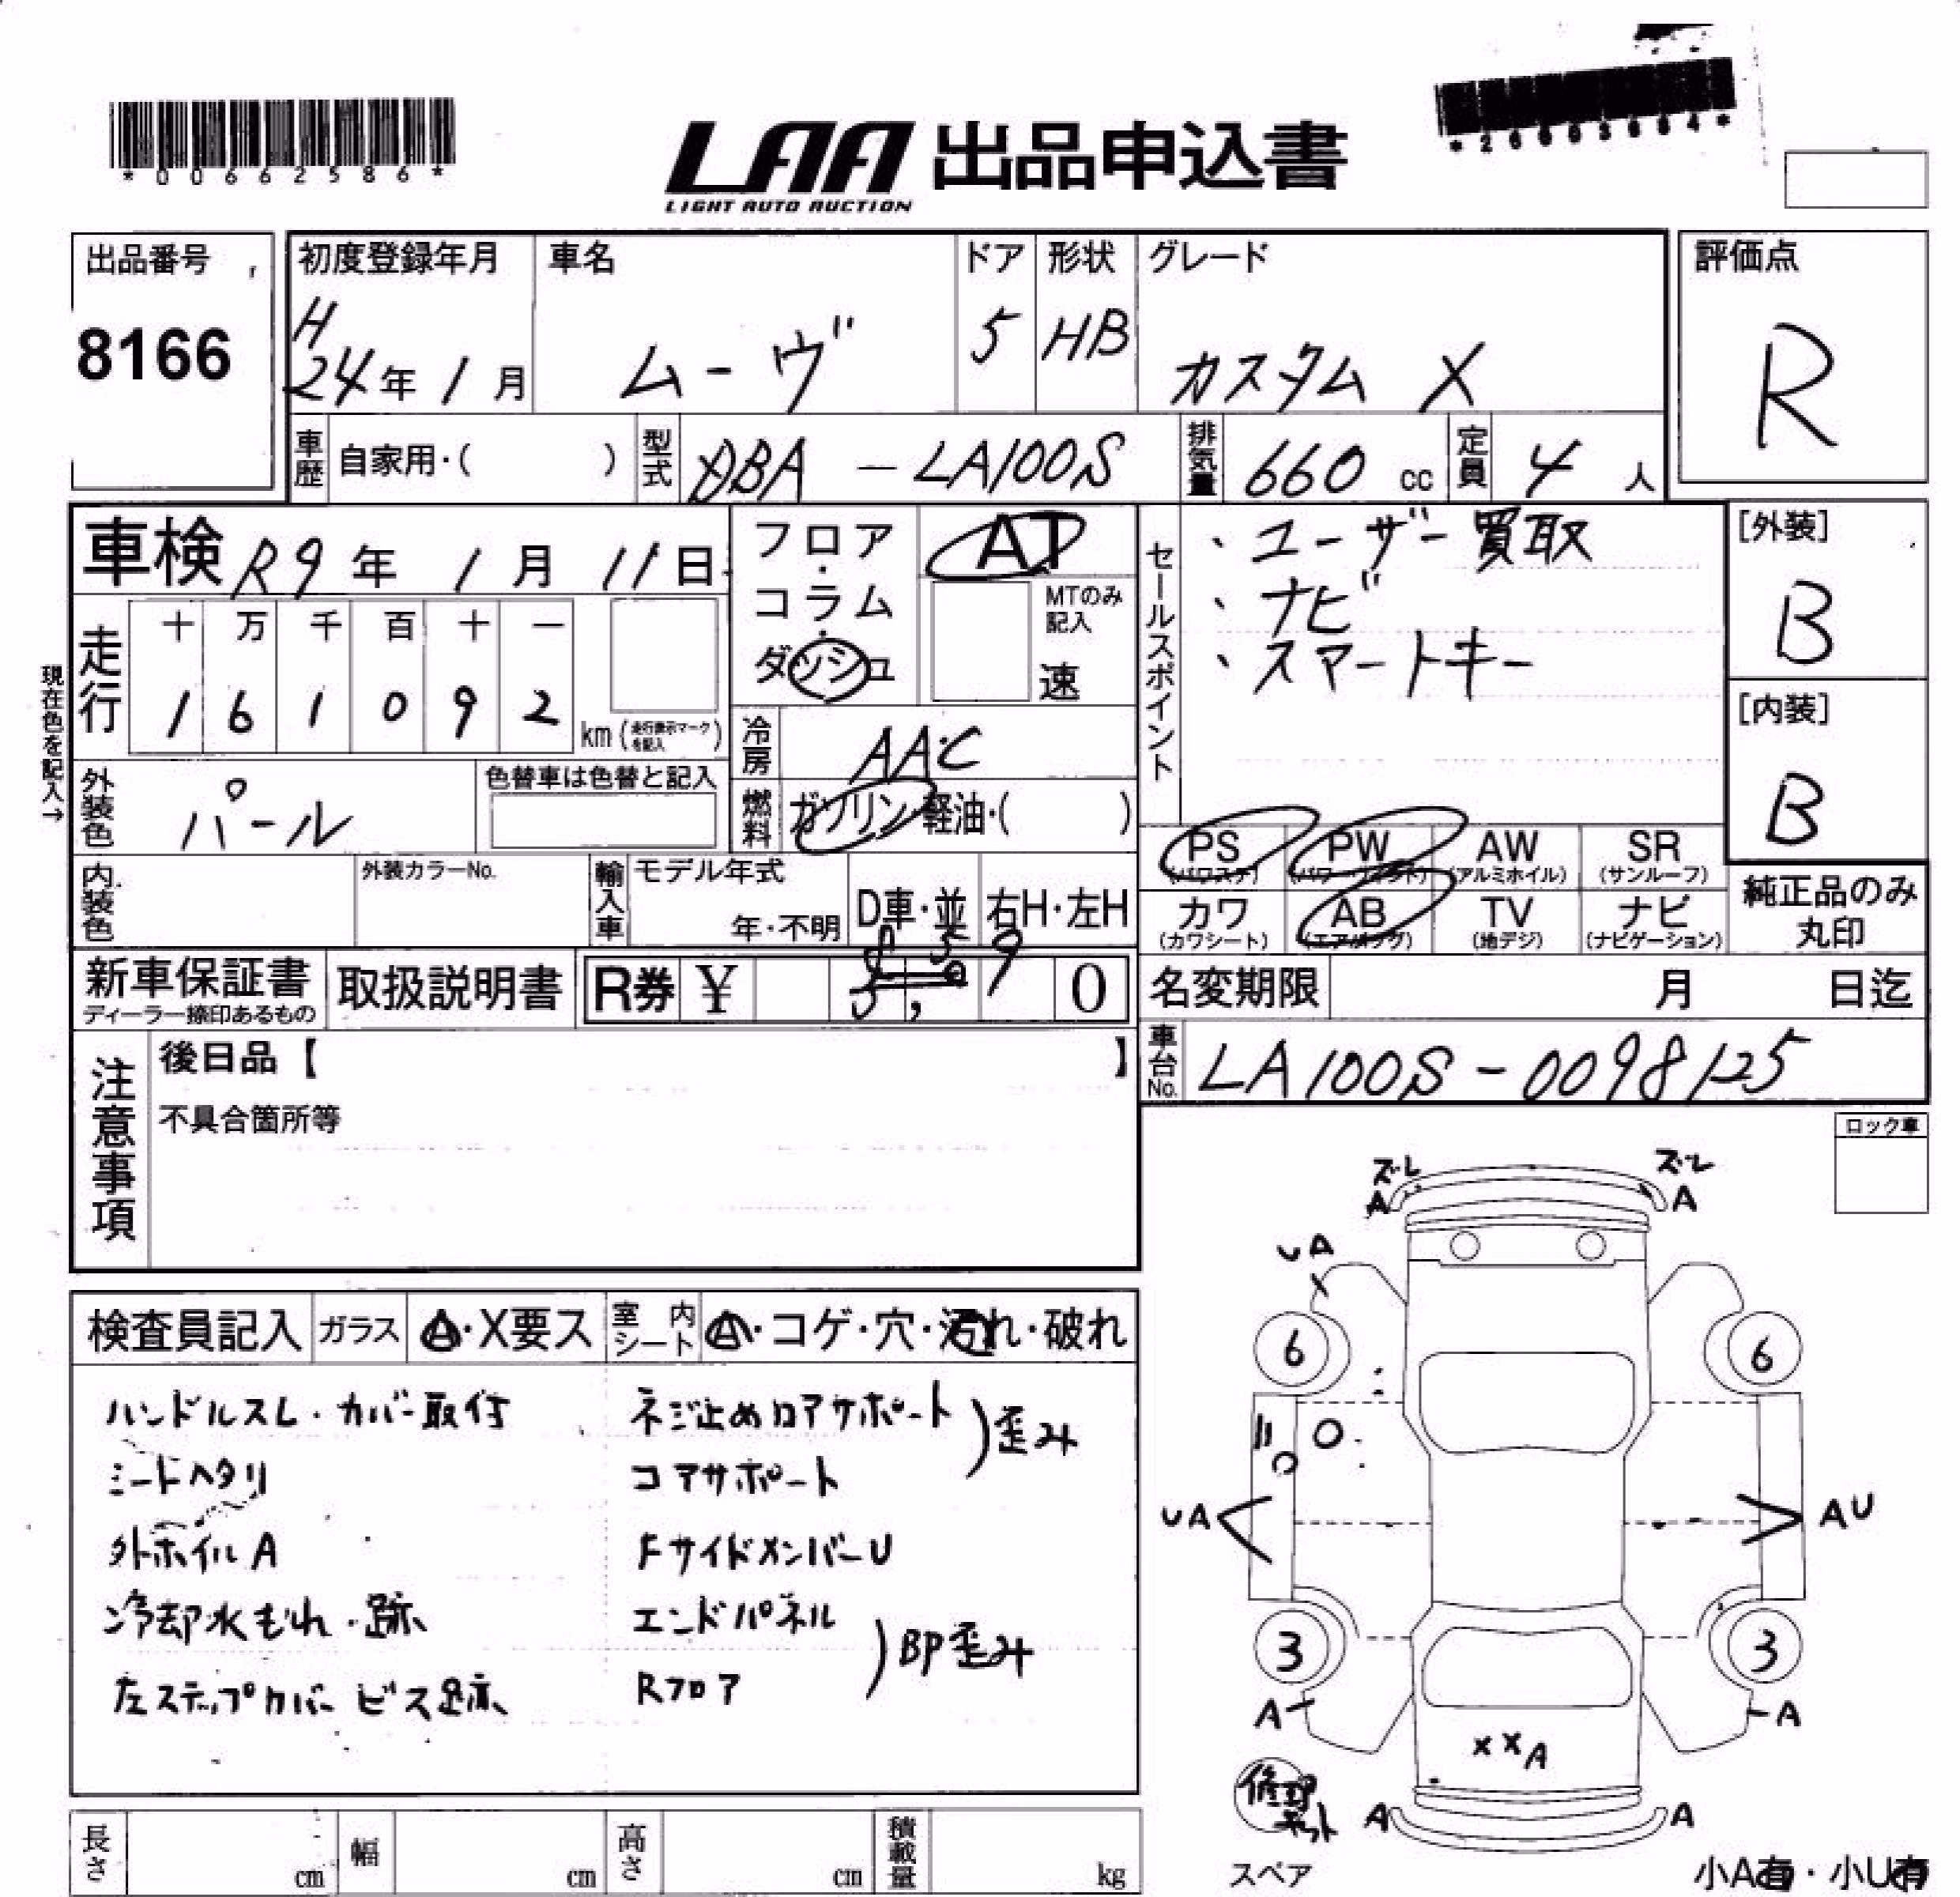 *00662586*
LAA 出品申込書
LIGHT AUTO AUCTION
出品番号
8166
初度登録年月
H
24年 1月
車名
ムーヴ
ドア
5
形状
HB
グレード
カスタム X
評価点
R
車歴 自家用・( )
型式 DBA - LA100S
排気量 660 cc
定員 4 人
車検 R9年 1月 11日
フロア・コラム・ダッシュ
AT
MTのみ記入
速
セールスポイント
、ユーザー買取
、ナビ
、スマートキー
[外装]
B
[内装]
B
現在色を記入→
走行
十 万 千 百 十 一
1 6 1 0 9 2
km (走行表示マークを記入)
冷房 AAC
外装色 パール
色替車は色替と記入
燃料 ガソリン・軽油・( )
PS (パワステ)
PW (パワーウィンド)
AW (アルミホイル)
SR (サンルーフ)
カワ (カワシート)
AB (エアバッグ)
TV (地デジ)
ナビ (ナビゲーション)
純正品のみ丸印
内装色
外装カラーNo.
輸入車
モデル年式
年・不明
D車・並
右H・左H
新車保証書
ディーラー捺印あるもの
取扱説明書
R券 ¥ 0
名変期限 月 日迄
車台No. LA100S-0098125
注意事項
後日品【 】
不具合箇所等
ロック車
検査員記入
ガラス A・X要ス
室内シート A・コゲ・穴・汚れ・破れ
ハンドルスレ・カバー取付
シートヘタリ
外ホイルA
冷却水もれ・跡
左ステップカバー ビス跡
ネジ止めロアサポート
コアサポート
)歪み
FサイドメンバーU
エンドパネル
Rフロア
)BP歪み
ズレ
A
ズレ
A
UA
6
6
UA
AU
3
3
A
A
XXA
A
A
修理キット
スペア
小A有・小U有
長さ cm
幅 cm
高さ cm
積載量 kg